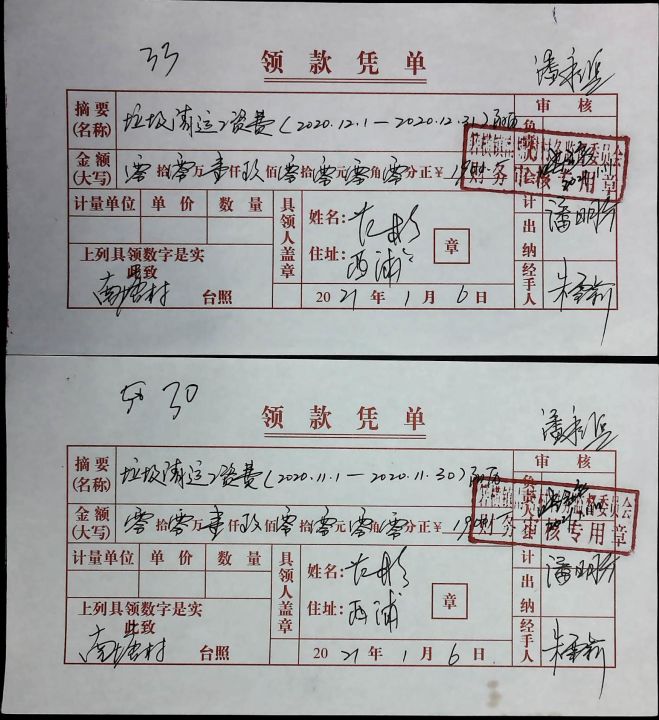 33
领款凭单
审核
摘要(名称) 垃圾清运工资费(2020.12.1—2020.12.31)
金额(大写) 零拾零万壹仟玖佰零拾零元零角零分正¥
财务审核专用章
计量单位 单价 数量
领具人盖章
姓名:
住址:西浦
章
会计
出纳
经手人
上列具领数字是实
此致
南塘村 台照
2021年1月6日
30
领款凭单
审核
摘要(名称) 垃圾清运工资费(2020.11.1—2020.11.30)
负责人
金额(大写) 零拾零万壹仟玖佰零拾零元零角零分正¥
财务审核专用章
计量单位 单价 数量
具领人盖章
姓名:
住址:西浦
章
会计
出纳
经手人
上列具领数字是实
此致
南塘村 台照
2021年1月6日